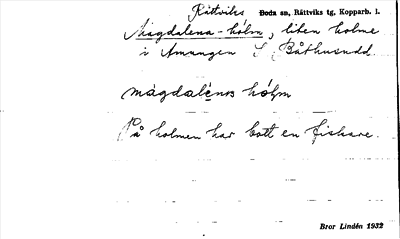 Rättviks Boda sn, Rättviks tg. Kopparb. l.
Magdalena-hólm, liten holme
i Amungen S Båthusudd
màgdalénɒs hólm
På holmen har bott en fiskare.
Bror Lindén 1932